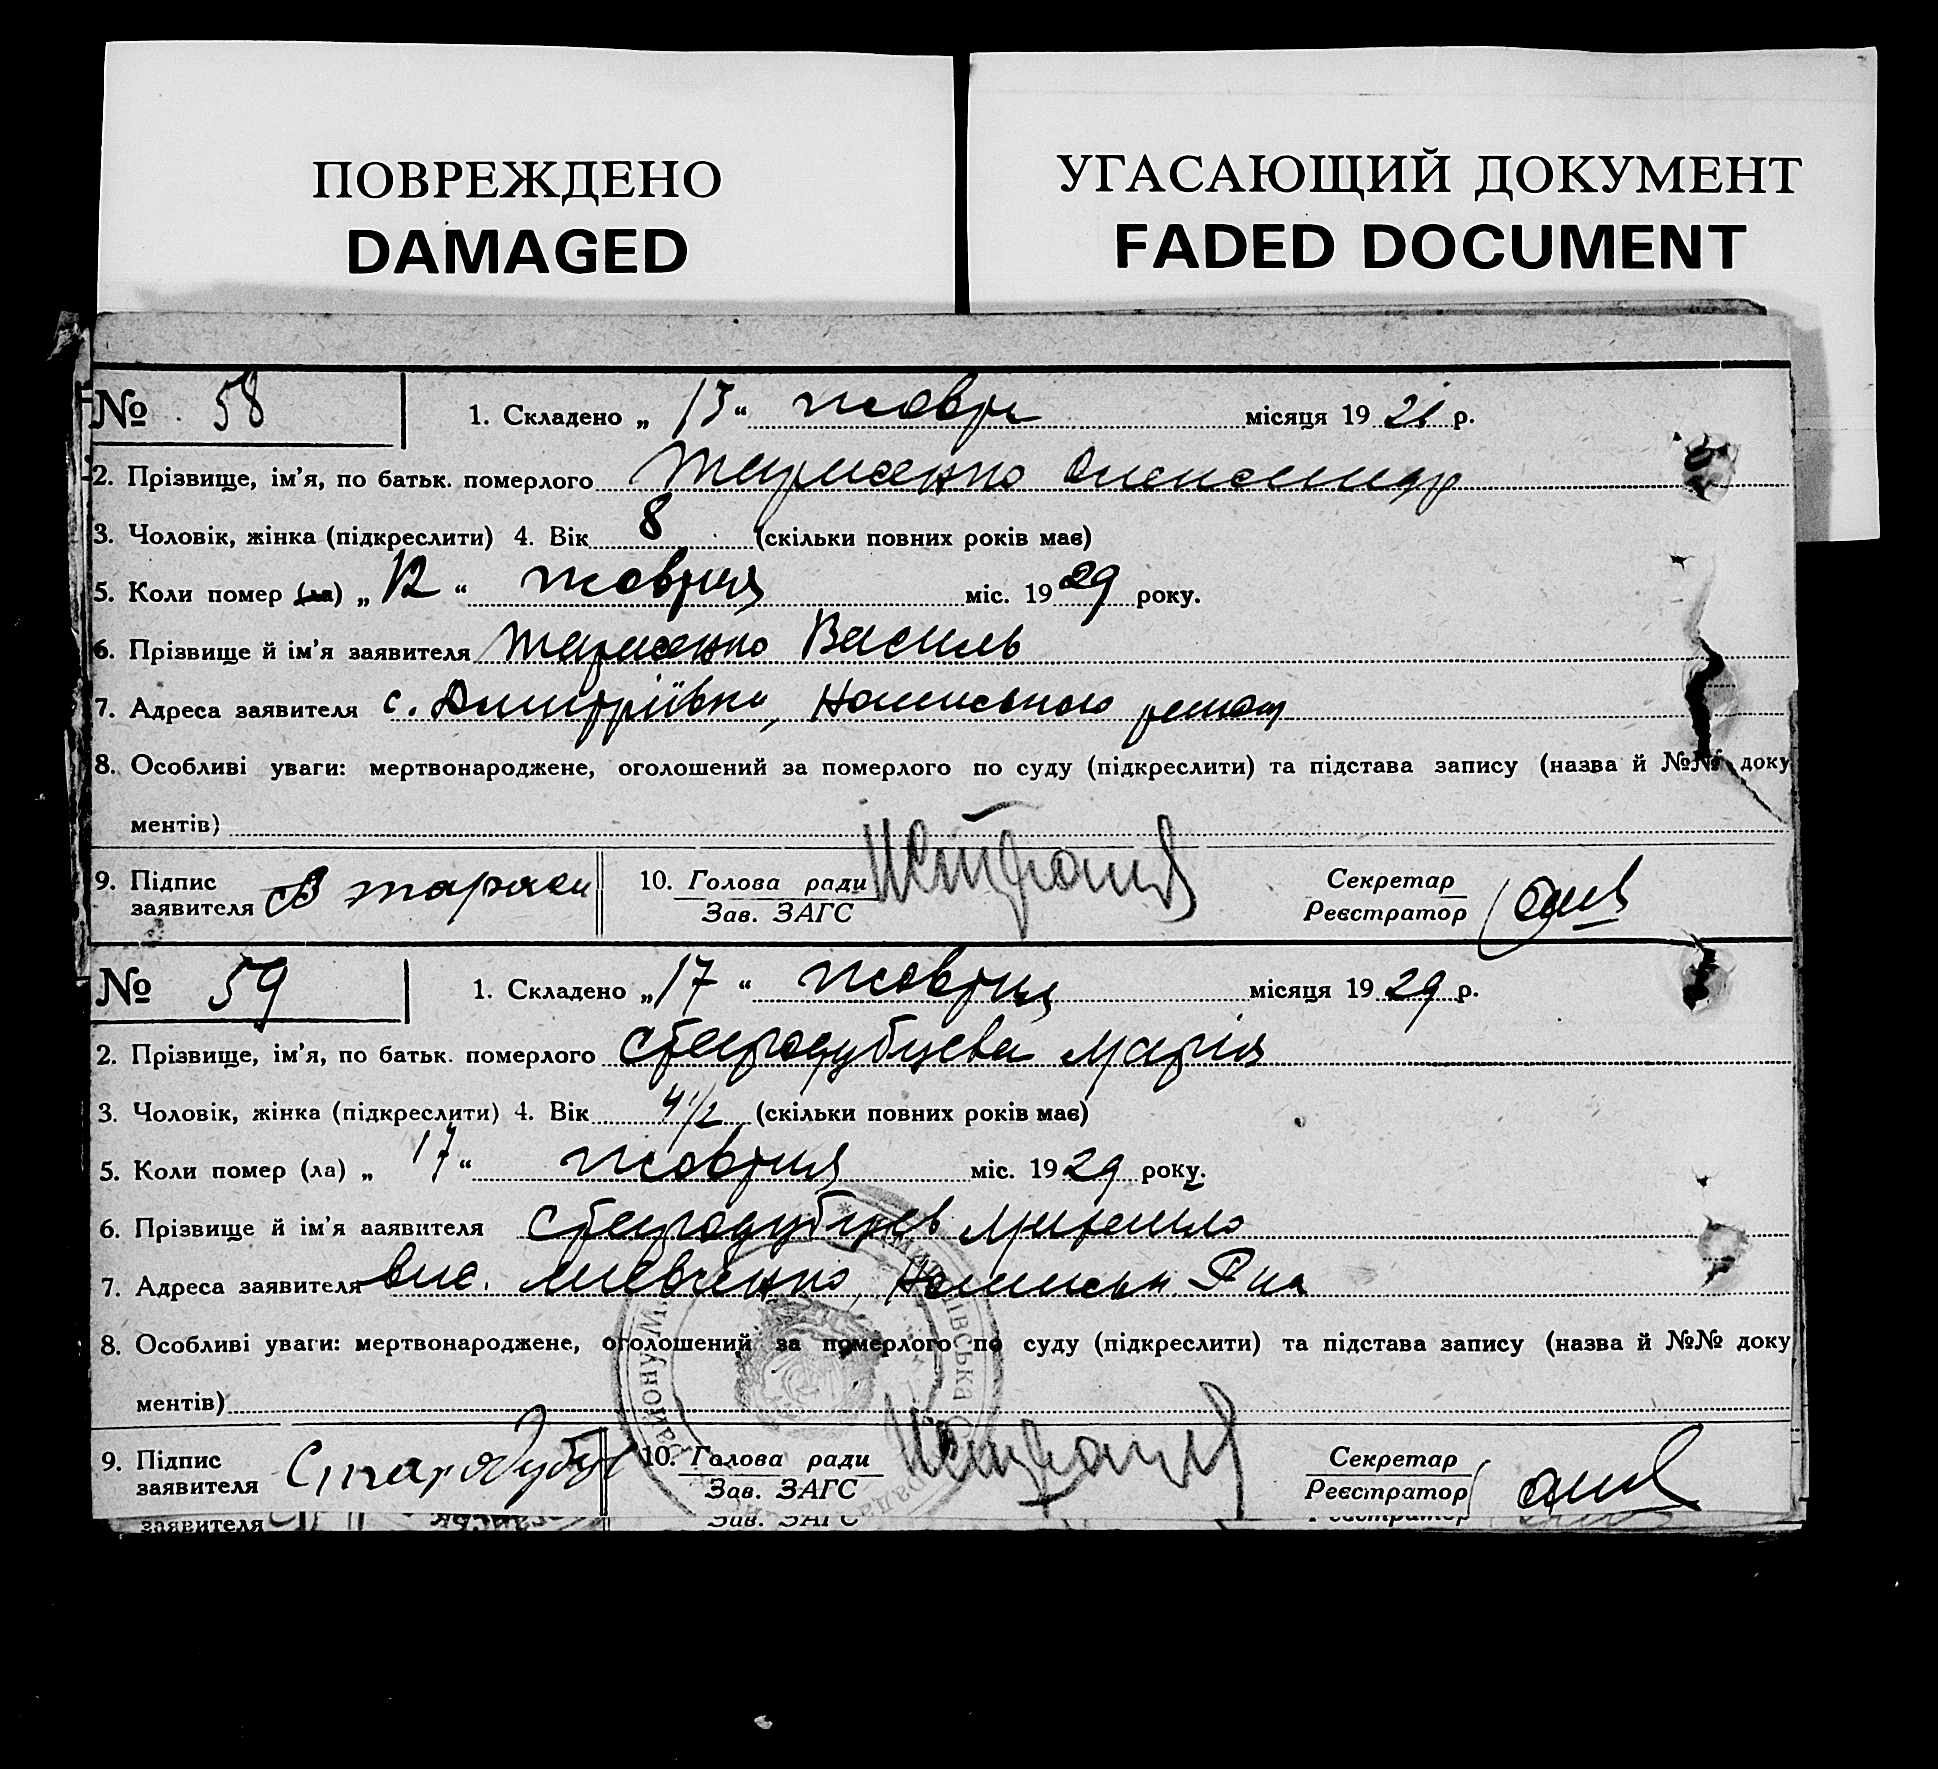 ПОВРЕЖДЕНО
DAMAGED
УГАСАЮЩИЙ ДОКУМЕНТ
FADED DOCUMENT
№ 58
1. Складено „ 13 “ жовтн місяця 19 р.
2. Прізвище, ім’я, по батьк. померлого Тарасенко Олександр
3. Чоловік, жінка (підкреслити) 4. Вік 8 (скільки повних років має)
5. Коли помер (ла) „ 12 “ жовтня міс. 19 29 року.
6. Прізвище й ім’я заявителя Тарасенко Василь
7. Адреса заявителя с. Дмитріївка,
8. Особливі уваги: мертвонароджене, оголошений за померлого по суду (підкреслити) та підстава запису (назва й №№ доку
ментів)
9. Підпис
заявителя В
10. Голова ради
Зав. ЗАГС
Секретар
Реєстратор
№ 59
1. Складено „ 17 “ жовтня місяця 19 29 р.
2. Прізвище, ім’я, по батьк. померлого Стародубцева Марія
3. Чоловік, жінка (підкреслити) 4. Вік 4 1/2 (скільки повних років має)
5. Коли помер (ла) „ 17 “ жовтня міс. 19 29 року.
6. Прізвище й ім’я ааявителя Стародубцев Михайло
7. Адреса заявителя вис. Шевченко,
8. Особливі уваги: мертвонароджене, оголошений за померлого по суду (підкреслити) та підстава запису (назва й №№ доку
ментів)
9. Підпис
заявителя Стародубц
10. Голова ради
Зав. ЗАГС
Секретар
Реєстратор
заявителя
Зав. ЗАГС
Реєстратор